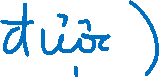 được )